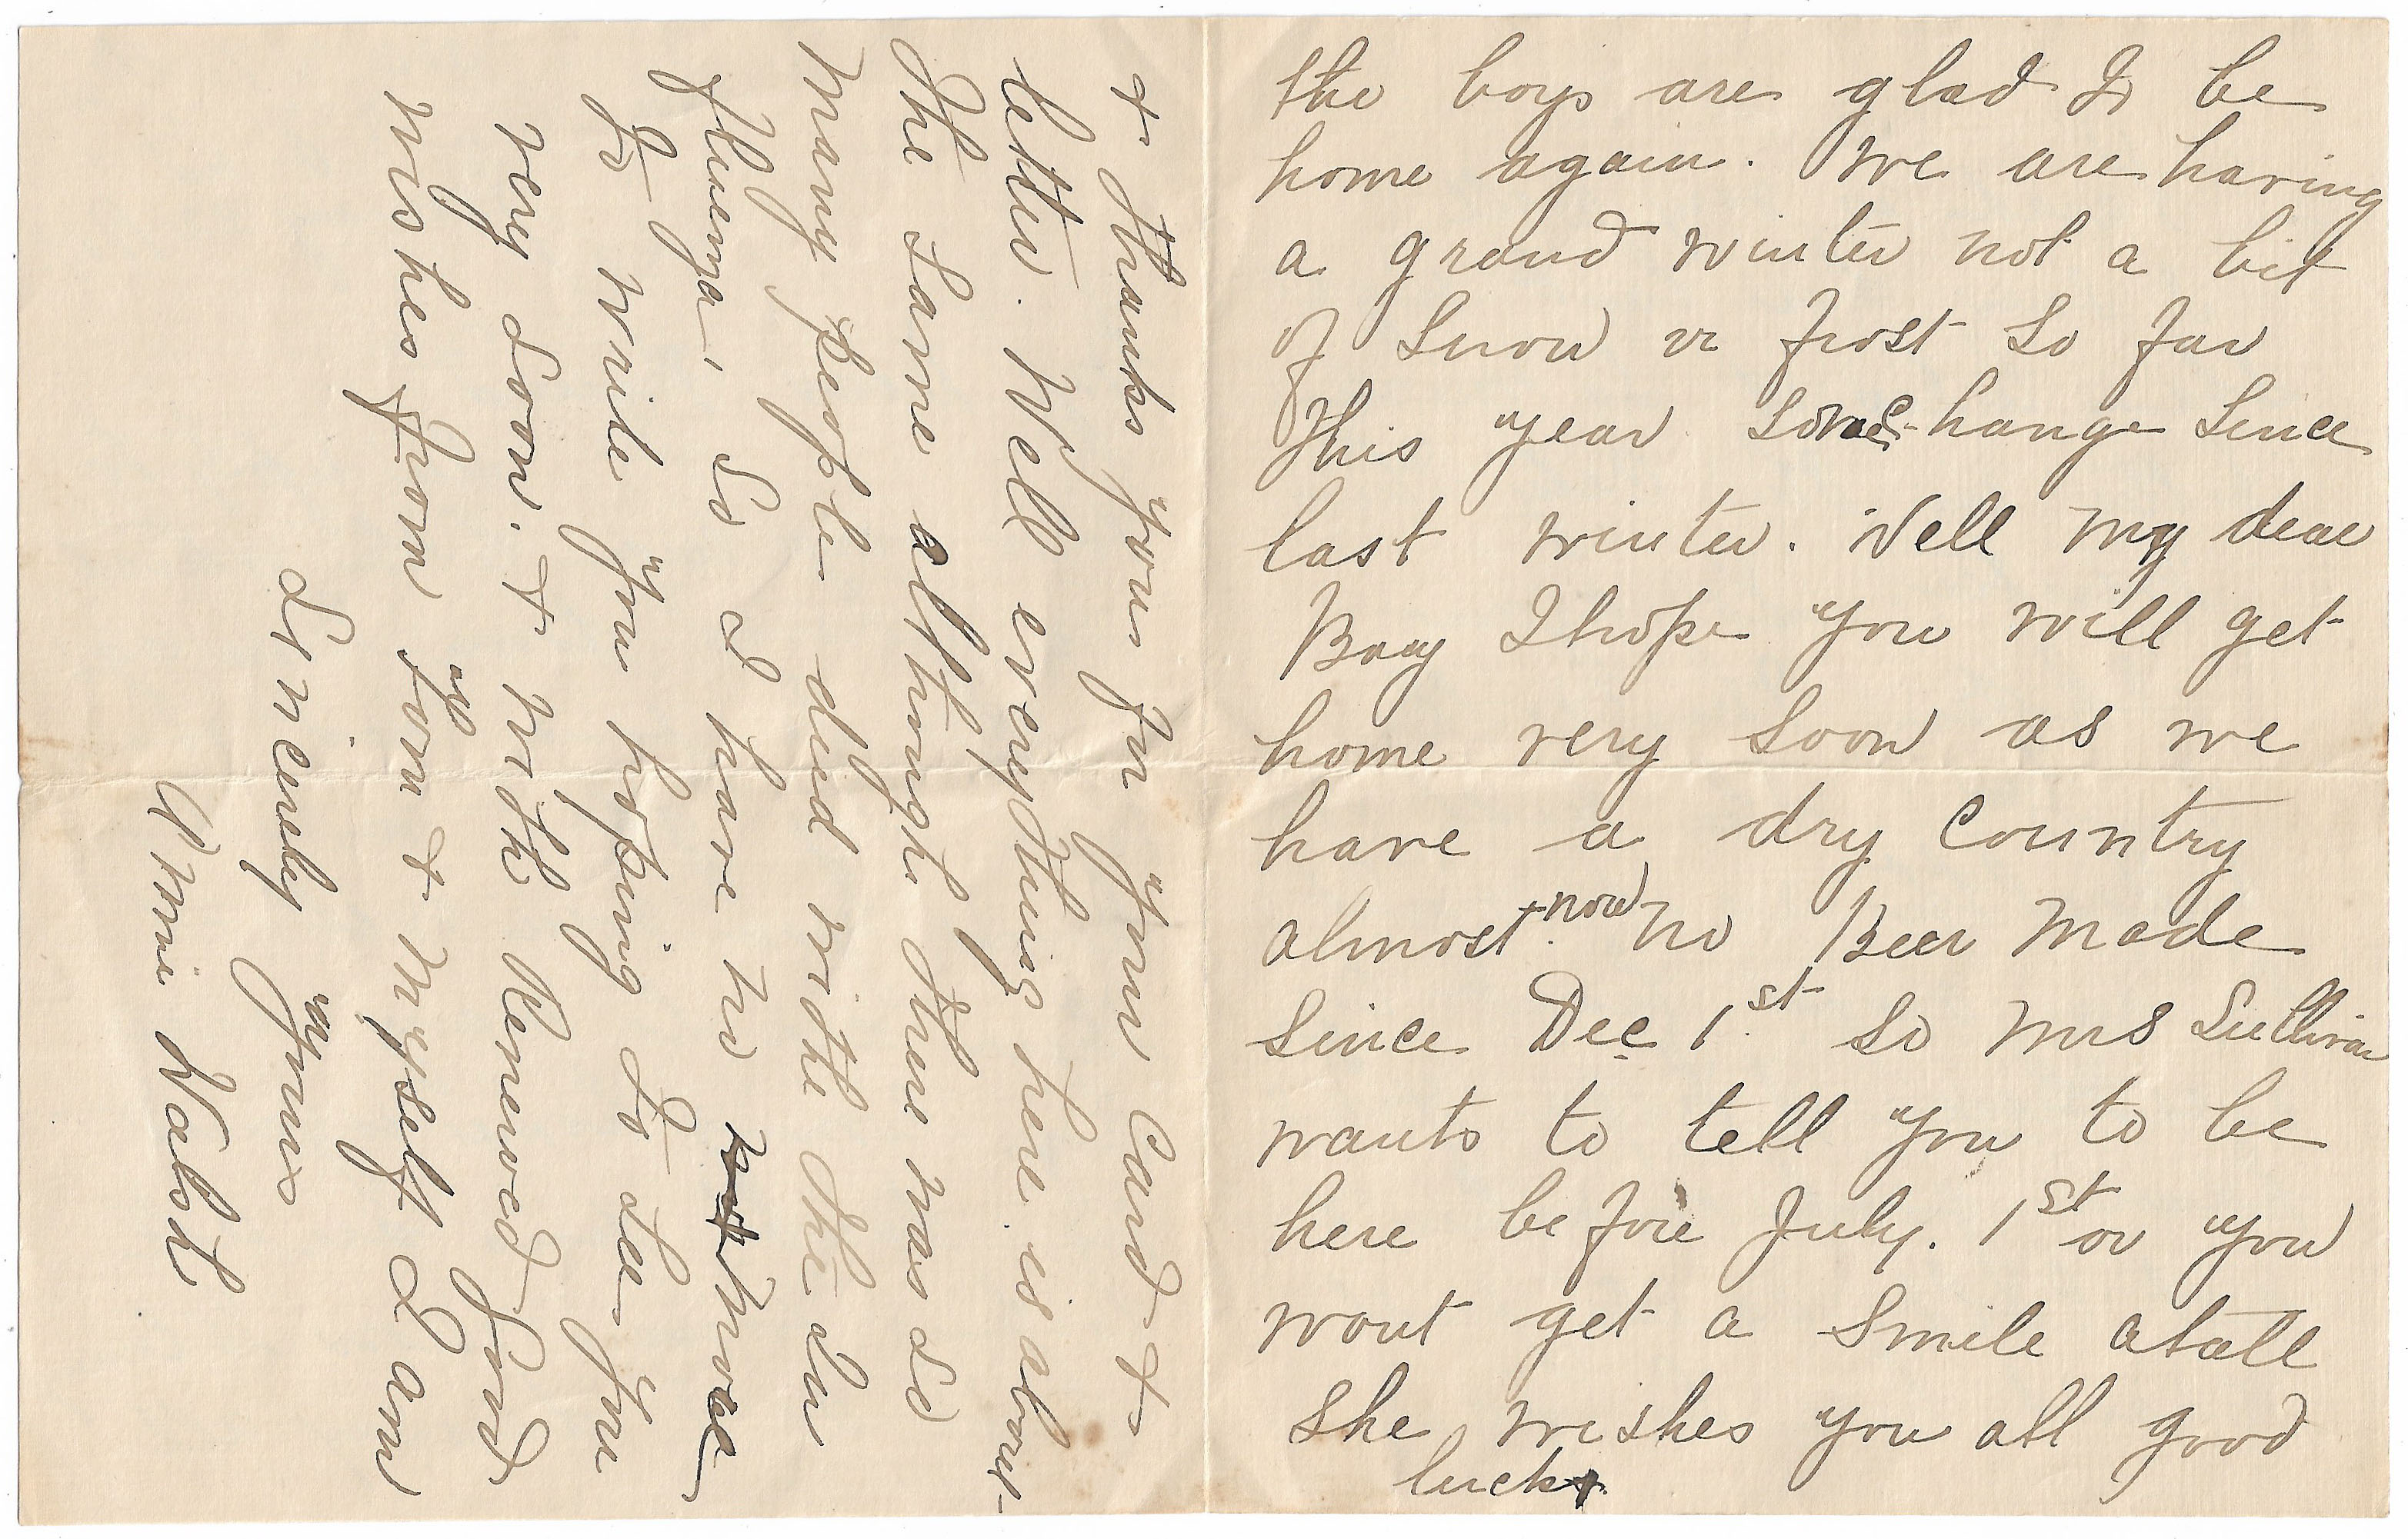 the boys are glad to be
home again. We are having
a grand winter not a bit
of Snow or frost So far
This year Some change Since
last winter. Well my dear
Boy I hope you will get
home very Soon as we
have a dry Country
almost now no Beer made
Since Dec 1st So Mrs Sullivan
wants to tell you to be
here before July. 1st or you
wont get a Smile atall
She wishes you all good
luck.
& Thanks you for your Card &
letter. Well everything here is about
The Same although there was so
many people died with the
Fluenza, So I have no more
to write you hoping to see you
very Soon. & with Renewed Good
wishes from Tom & myself I am
Sincerely yours
Annie Walsh